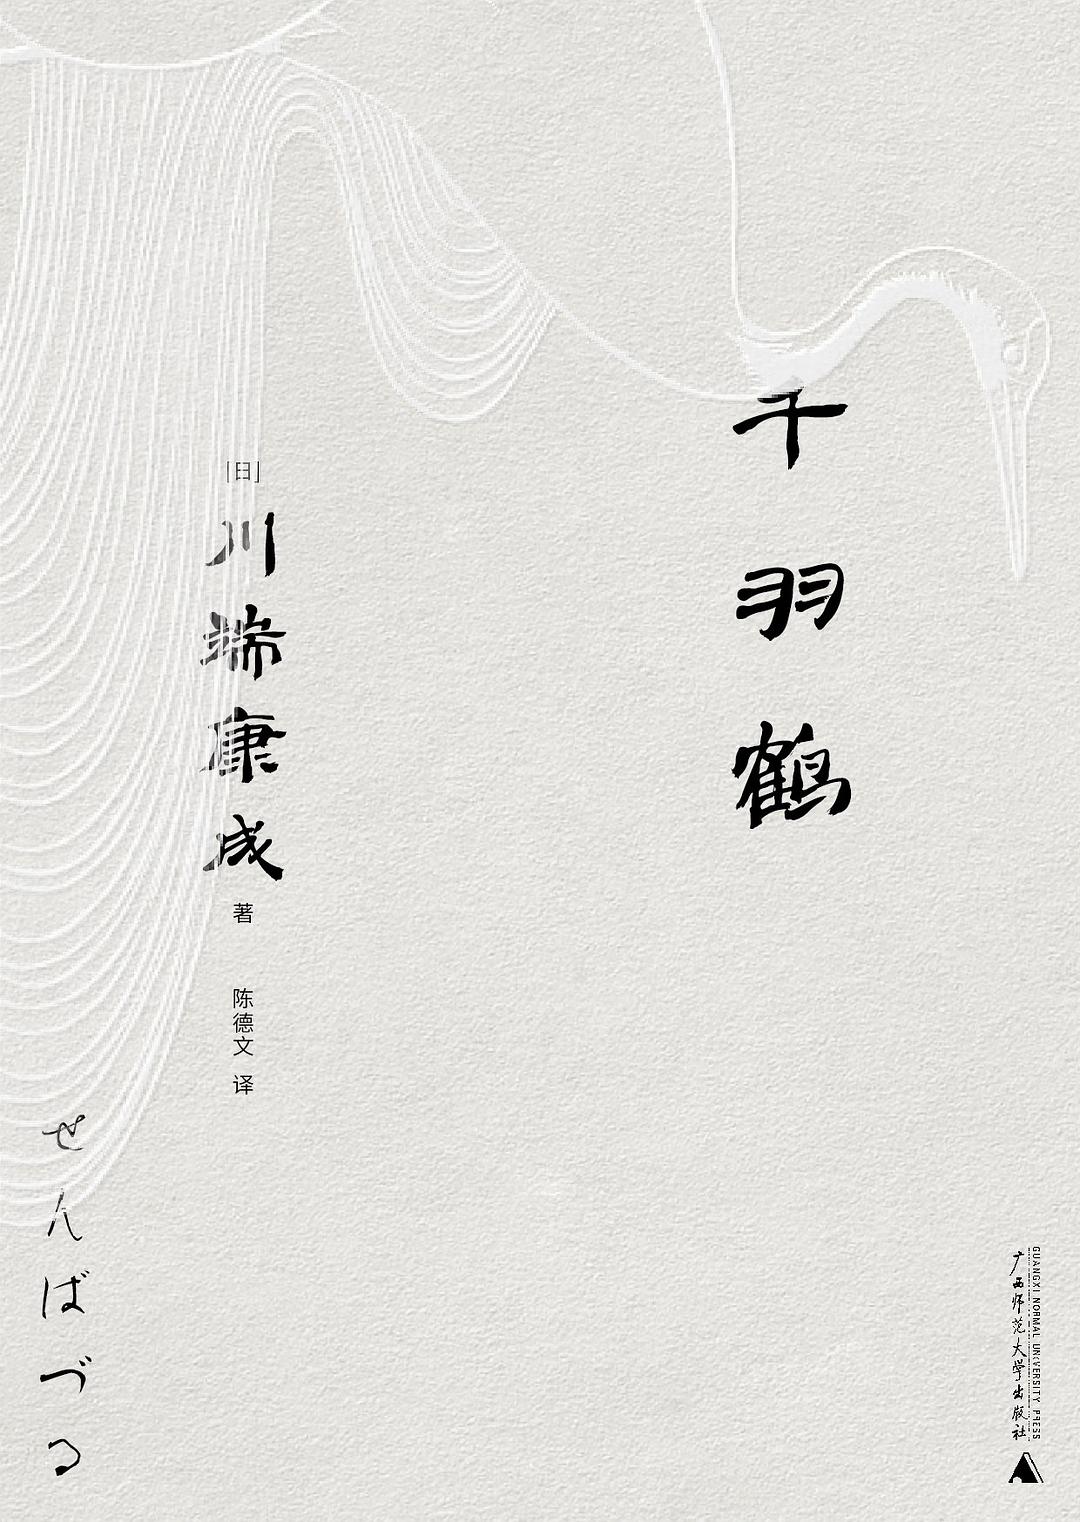 千羽鹤
[日]
川端康成
著
陈德文 译
せんばづる
广西师范大学出版社
GUANGXI NORMAL UNIVERSITY PRESS